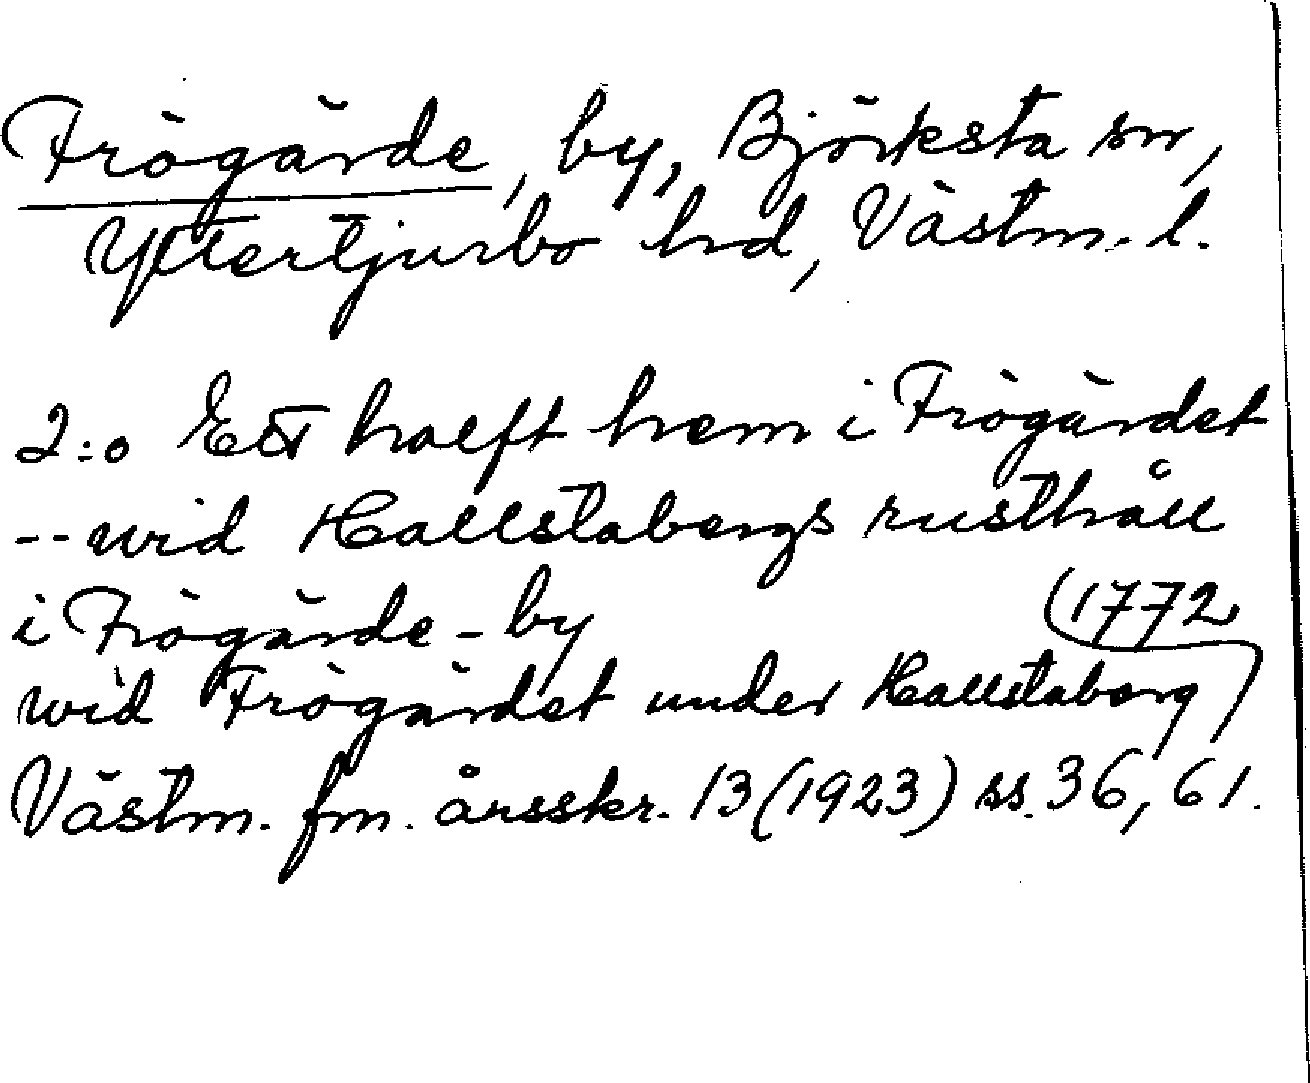 Frögärde, by, Björksta sn,
Yttertjurbo hd, Västm. l.
2:o Ett halft hem i Frögärdet
-- wid Hallstabergs rusthåll
i Frögärde-by (1772)
wid Frögärdet under Hallstaberg
Västm. fm. årsskr. 13 (1923) ss. 36, 61.